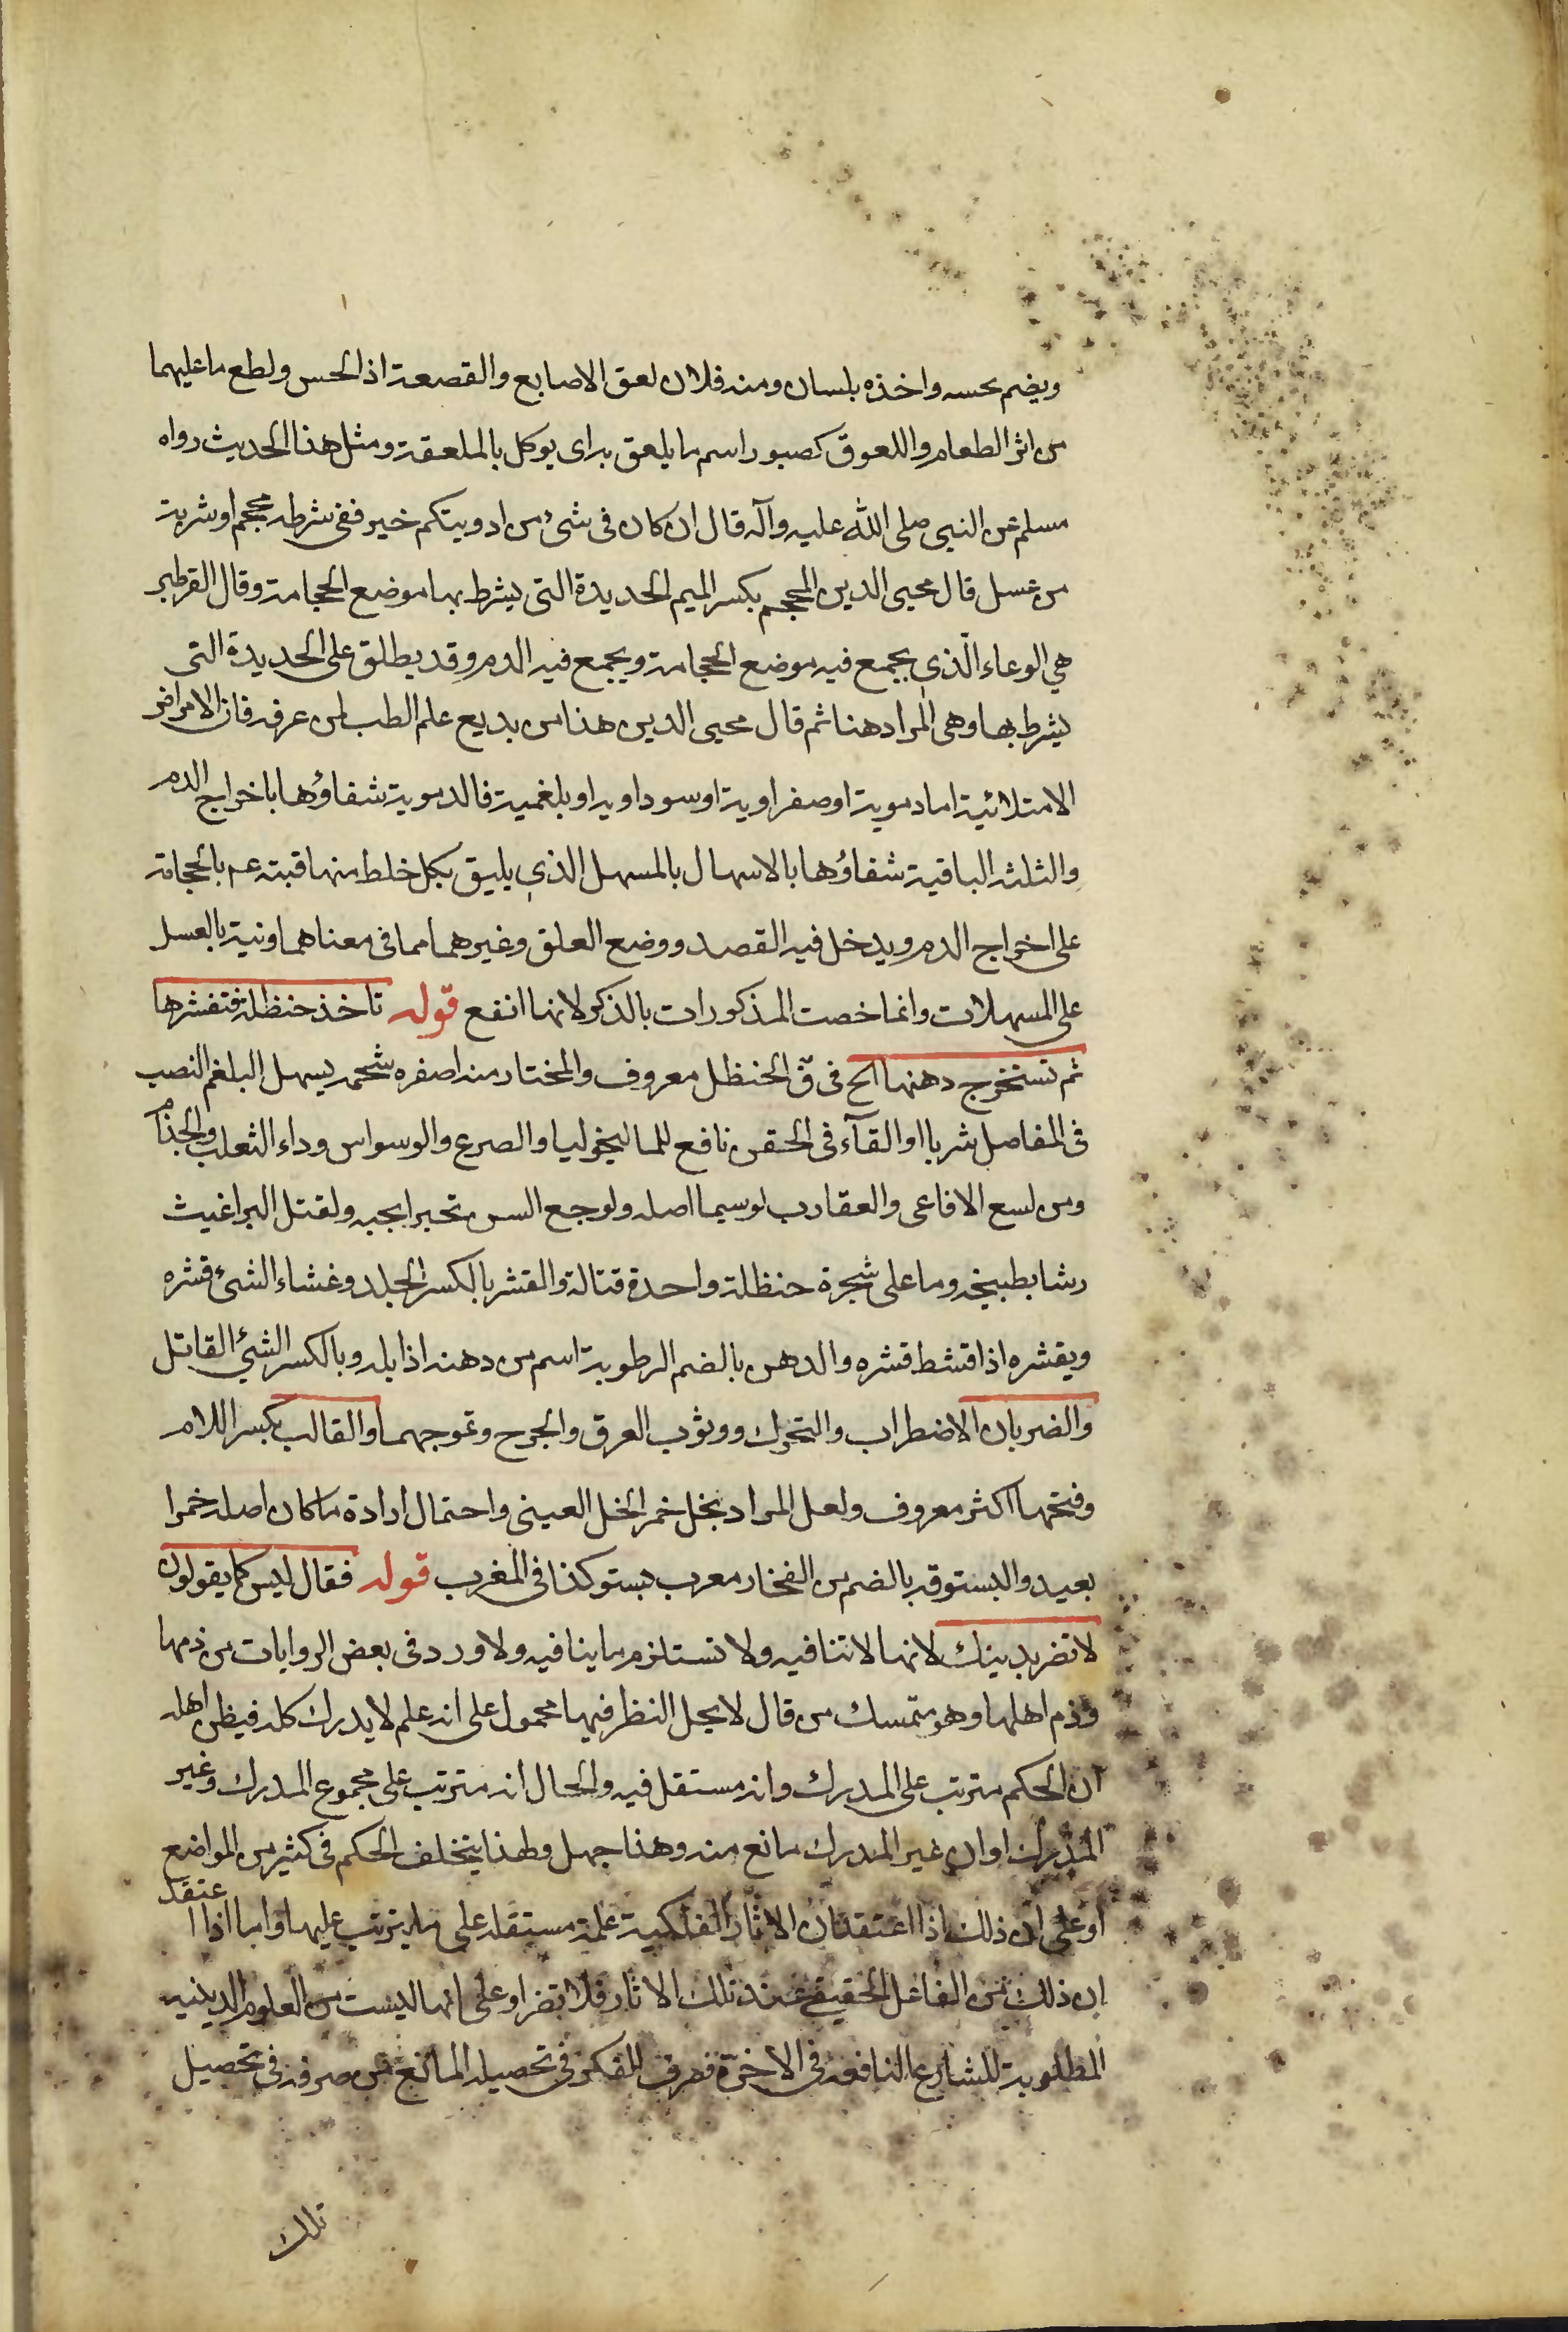 ويضم يحسه واخذه بلسان ومنه فلان لعق الاصابع والقصعة اذا لحس ولطع ما عليهما
من اثر الطعام واللعوق كصبور اسم ما يلعق به اى يوكل بالملعقة ومثل هذا الحديث رواه
مسلم عن النبى صلى الله عليه وآله قال ان كان فى شئ من ادويتكم خير ففى شرطه محجم او شربة
من عسل قال محيى الدين المحجم بكسر الميم الحديدة التى يشرط بها موضع الحجامة وقال القرطبى
هي الوعاء الّذى يجمع فيه موضع الحجامة ويجمع فيه الدم وقد يطلق على الحديدة التى
يشرط بها وهى المراد هنا ثم قال محيى الدين هذا من بديع علم الطب لمن عرفه فان الامراض
الامتلائية اما دموية او صفراوية او سوداويه او بلغمية فالدموية شفاؤها باخراج الدم
والثلثه الباقية شفاؤها بالاسهال بالمسهل الذى يليق بكل خلط منها فنبه عم بالحجامة
على اخراج الدم ويدخل فيه الفصد ووضع العلق وغيرهما مما فى معناهما ونبه بالعسل
على المسهلات وانما خصت المذكورات بالذكر لانها انفع قوله تاخذ حنظلة فتقشرها
ثم تستخرج دهنها الخ فى ق الحنظل معروف والمختار منه اصفره شحمه يسهل البلغم النصب
فى المفاصل شربا او القآء فى الحقن نافع للماليخوليا والصرع والوسواس وداء الثعلب والجذام
ومن لسع الافاعى والعقارب لوسيما اصله ولوجع السن تبخرا بحبه ولقتل البراغيث
رشا بطبيخه وما على شجرة حنظلة واحدة قتالة والقشر بالكسر الجلد وغشاء الشئ قشره
ويقشره اذا قشط قشره والدهن بالضم الرطوبة اسم من دهنه اذا بله وبالكسر الشئ القاتل
والضربان الاضطراب والتحرك ووثوب العرق والجرح وتموجهما والقالب بكسر اللام
وفتحها اكثر معروف ولعل المراد بخل خمر الخل العينى واحتمال ارادة ما كان اصله خمرا
بعيد والبستوقه بالضم من الفخار معرب بستو كذا فى المغرب قوله فقال ليس كما يقولون
لا تضر بدينك لانها لا تنافيه ولا تستلزم ما ينافيه ولا ورد فى بعض الروايات من ذمها
وذم اهلها وهو متمسك من قال لا يحل النظر فيها محمول على انه علم لا يدرك كله فيظن اهله
ان الحكم مترتب على المدرك وانه مستقل فيه والحال انه مترتب على مجموع المدرك وغير
المدرك او ان غير المدرك مانع منه وهذا جهل ولهذا يتخلف الحكم فى كثير من المواضع
او على ان ذلك اذا اعتقد ان الاثار الفلكية علة مستقله على ما يترتب عليها واما اذا اعتقد
ان ذلك من الفاعل الحقيقى عند تلك الاثار فلا تضر او على انها ليست من العلوم الدينيه
المطلوبة للشارع النافعة فى الاخرة فصرف الفكر فى تحصيله المانع من صرفه فى تحصيل
تلك